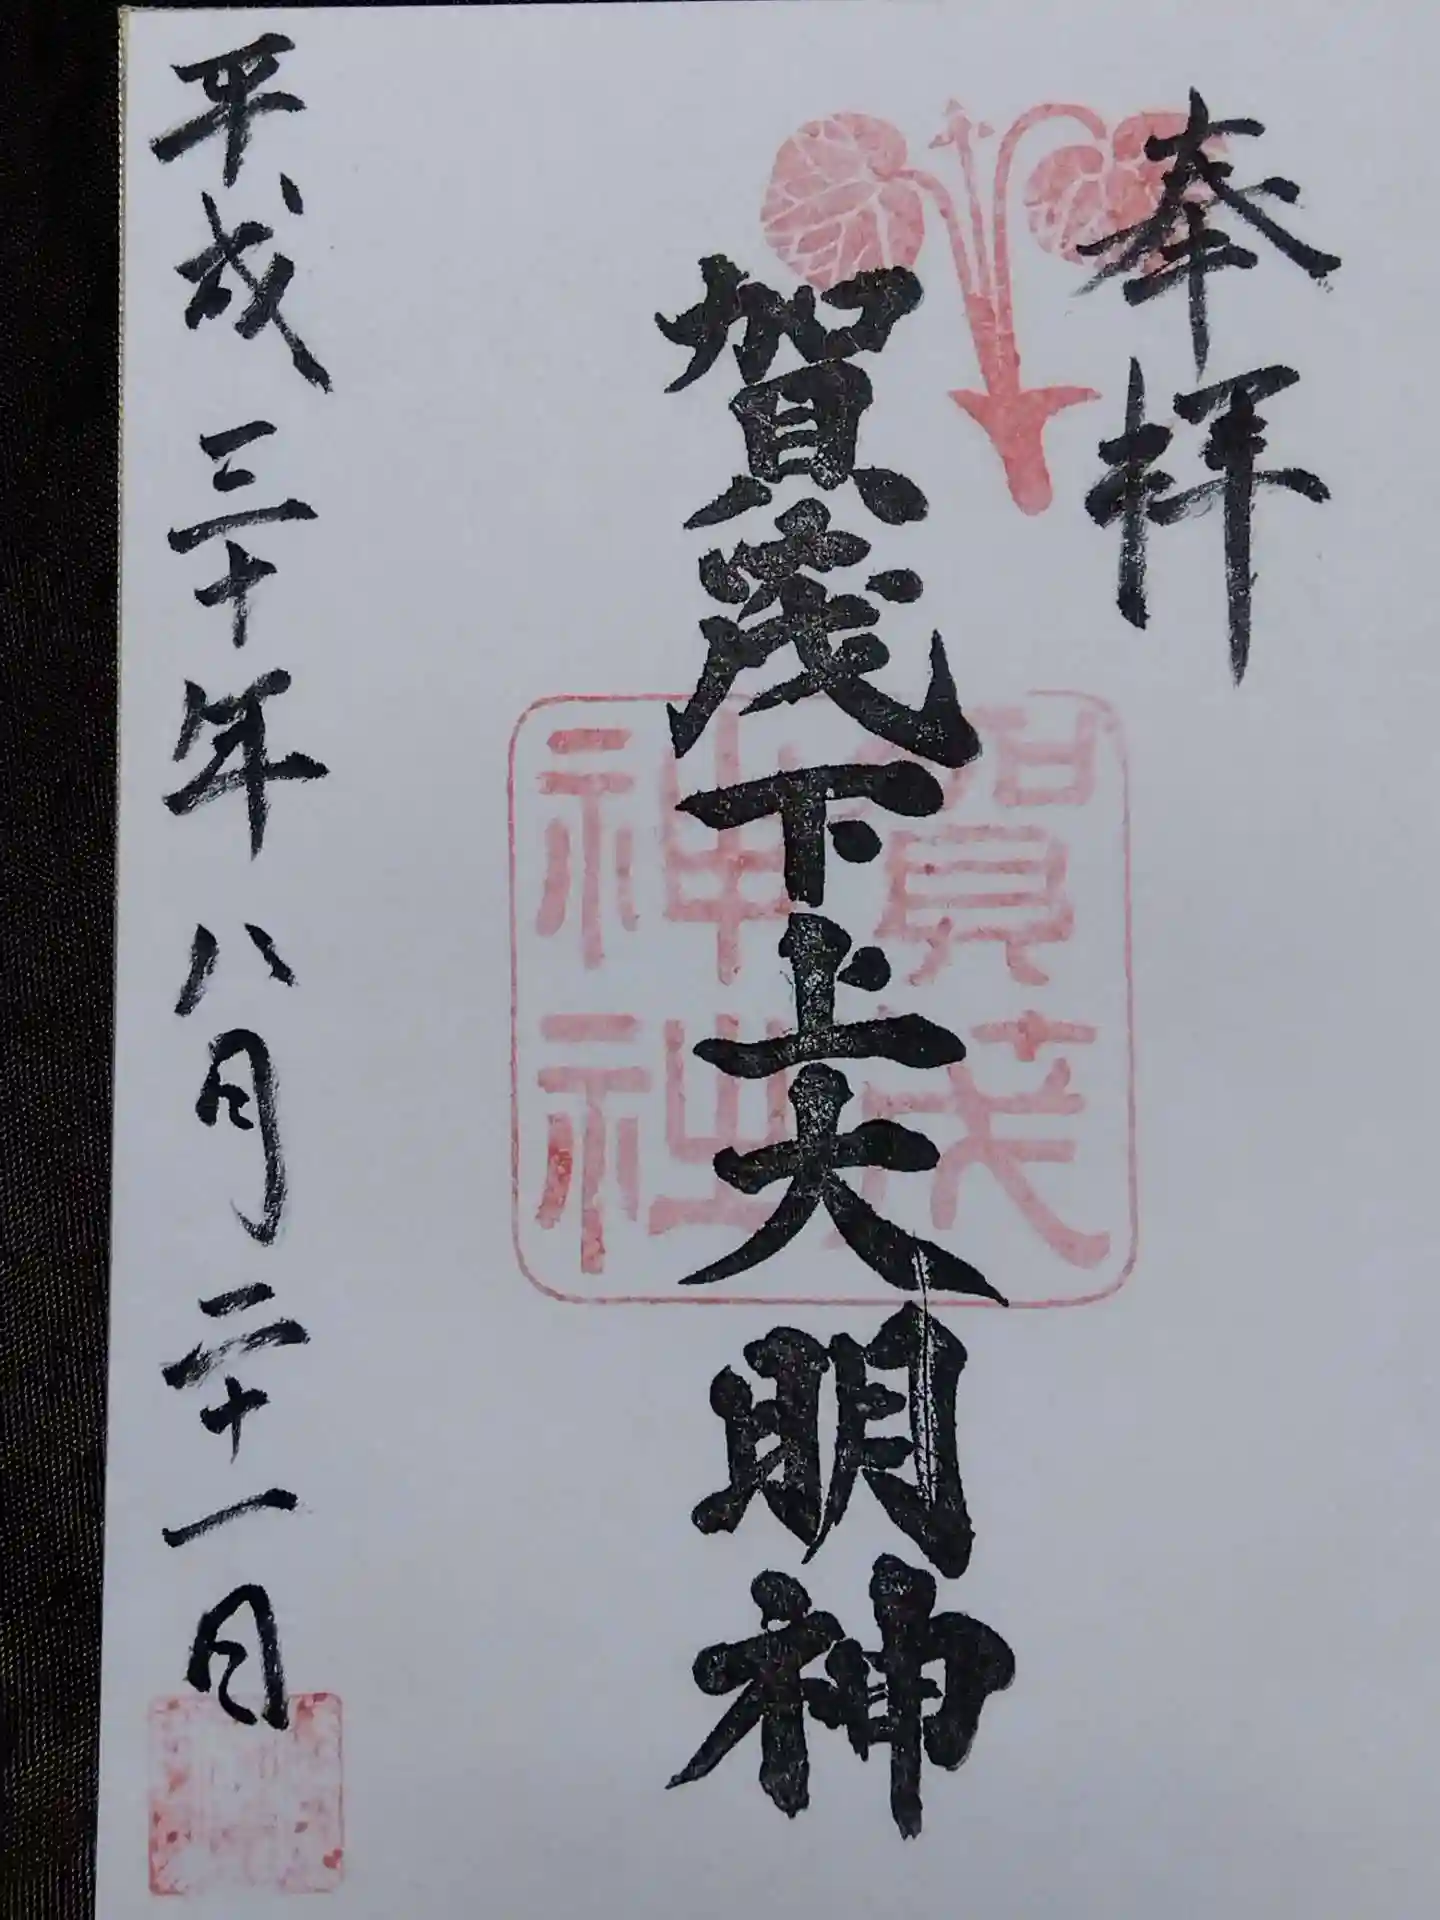 奉拝
賀茂下上大明神
賀茂
神社
平成三十年八月二十一日